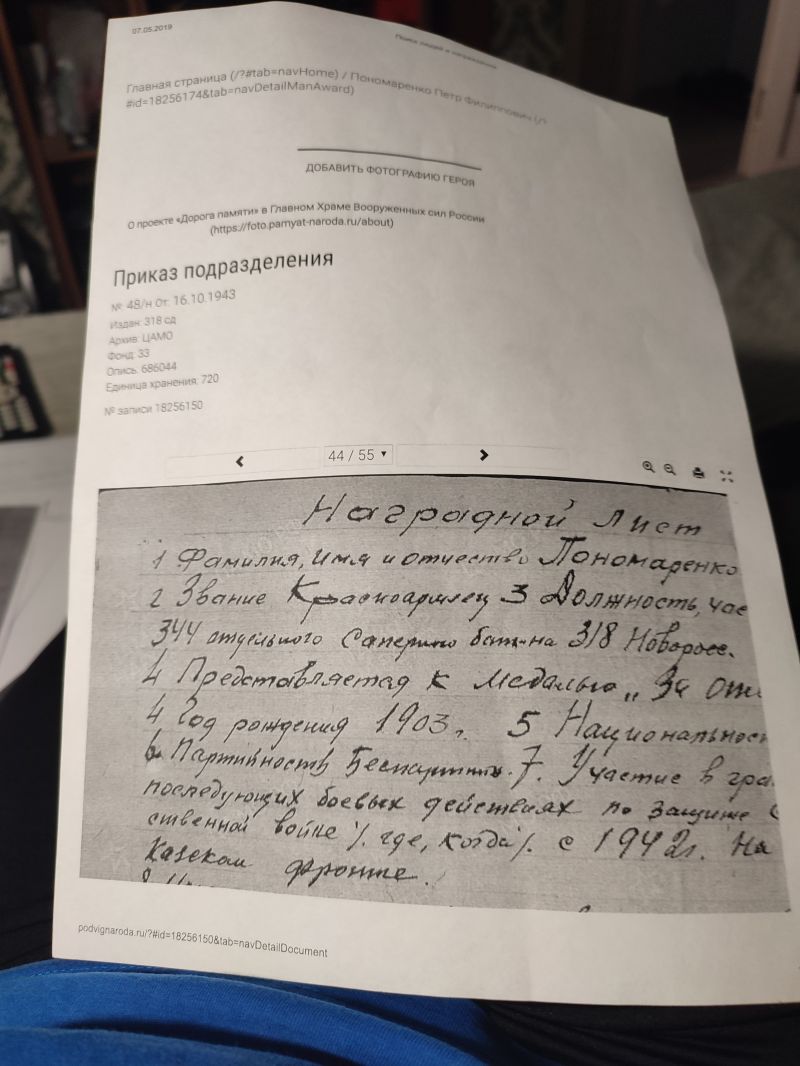 07.05.2019
Поиск людей и награждений
Главная страница (/?#tab=navHome) / Пономаренко Петр Филиппович (/?
#id=18256174&tab=navDetailManAward)
ДОБАВИТЬ ФОТОГРАФИЮ ГЕРОЯ
О проекте «Дорога памяти» в Главном Храме Вооруженных сил России
(https://foto.pamyat-naroda.ru/about)
Приказ подразделения
№: 48/н От: 16.10.1943
Издан: 318 сд
Архив: ЦАМО
Фонд: 33
Опись: 686044
Единица хранения: 720
№ записи 18256150
44 / 55
Наградной лист
1 Фамилия, имя и отчество Пономаренко
2 Звание Красноармеец 3 Должность, час
344 отдельного Саперного бат-на 318 Новоросс.
4 Представляется к медалью „За отв
4 Год рождения 1903г. 5 Национальност
6 Партийность Беспартийн. 7. Участие в гра
последующих боевых действиях по защите
ственной войне /. где, когда /. с 1942г. На
Казском фронте.
podvignaroda.ru/?#id=18256150&tab=navDetailDocument